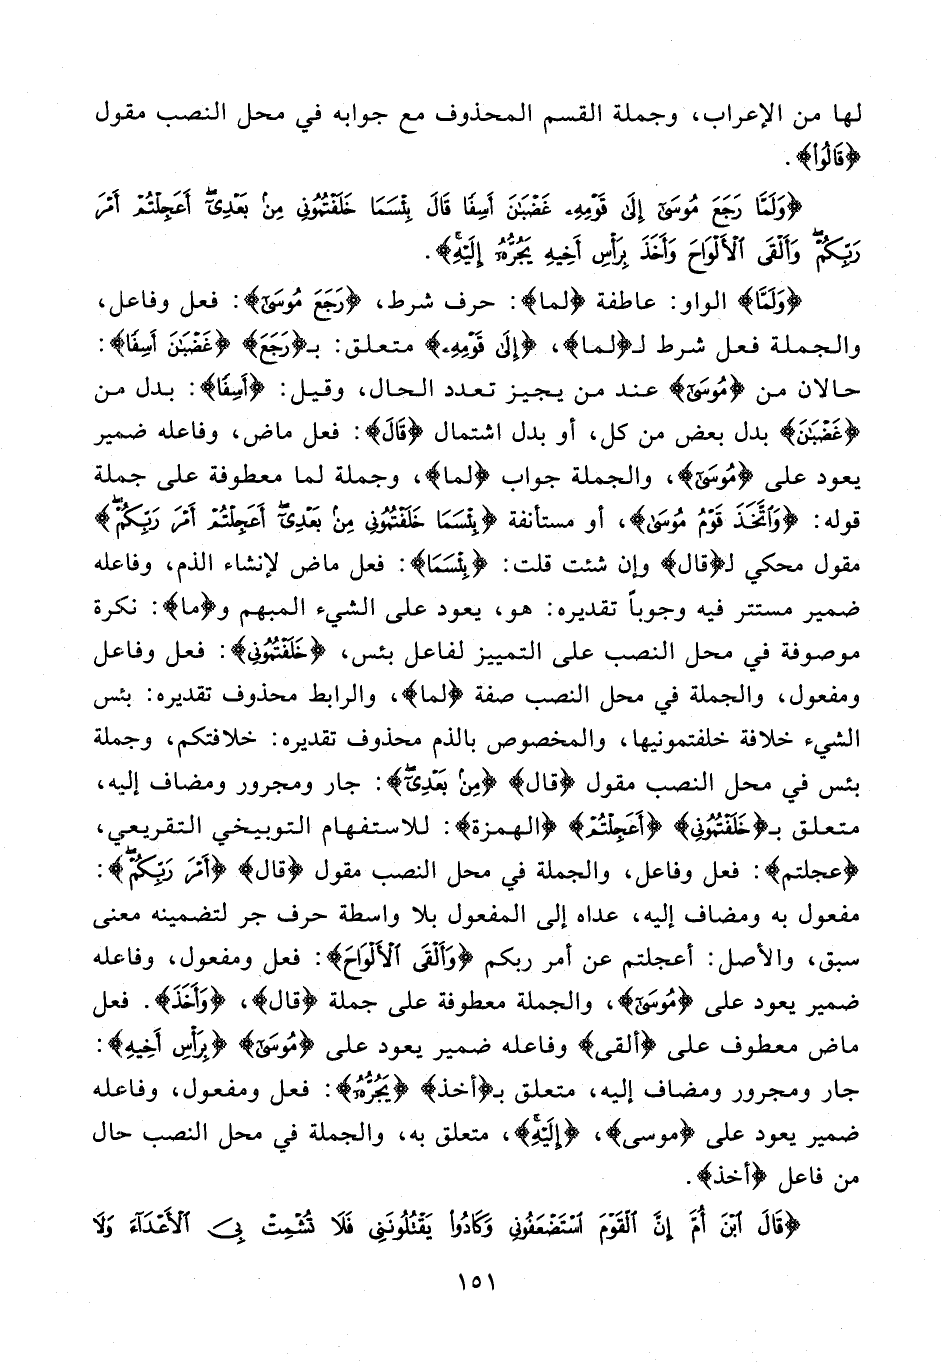 لها من الإعراب، وجملة القسم المحذوف مع جوابه في محل النصب مقول
﴿قَالُوا﴾.
﴿وَلَمَّا رَجَعَ مُوسَىٰٓ إِلَىٰ قَوْمِهِۦ غَضْبَٰنَ أَسِفًا قَالَ بِئْسَمَا خَلَفْتُمُونِي مِنۢ بَعْدِيٓۖ أَعَجِلْتُمْ أَمْرَ
رَبِّكُمْۖ وَأَلْقَى ٱلْأَلْوَاحَ وَأَخَذَ بِرَأْسِ أَخِيهِ يَجُرُّهُۥٓ إِلَيْهِۚ﴾.
﴿وَلَمَّا﴾ الواو: عاطفة ﴿لما﴾: حرف شرط، ﴿رَجَعَ مُوسَىٰٓ﴾: فعل وفاعل،
والجملة فعل شرط لـ﴿لما﴾، ﴿إِلَىٰ قَوْمِهِۦ﴾ متعلق: بـ﴿رَجَعَ﴾ ﴿غَضْبَٰنَ أَسِفًا﴾:
حالان من ﴿مُوسَىٰٓ﴾ عند من يجيز تعدد الحال، وقيل: ﴿أَسِفًا﴾: بدل من
﴿غَضْبَٰنَ﴾ بدل بعض من كل، أو بدل اشتمال ﴿قَالَ﴾: فعل ماض، وفاعله ضمير
يعود على ﴿مُوسَىٰٓ﴾، والجملة جواب ﴿لما﴾، وجملة لما معطوفة على جملة
قوله: ﴿وَٱتَّخَذَ قَوْمُ مُوسَىٰ﴾، أو مستأنفة ﴿بِئْسَمَا خَلَفْتُمُونِي مِنۢ بَعْدِيٓۖ أَعَجِلْتُمْ أَمْرَ رَبِّكُمْۖ﴾
مقول محكي لـ﴿قال﴾ وإن شئت قلت: ﴿بِئْسَمَا﴾: فعل ماض لإنشاء الذم، وفاعله
ضمير مستتر فيه وجوباً تقديره: هو، يعود على الشيء المبهم و﴿ما﴾: نكرة
موصوفة في محل النصب على التمييز لفاعل بئس، ﴿خَلَفْتُمُونِي﴾: فعل وفاعل
ومفعول، والجملة في محل النصب صفة ﴿لما﴾، والرابط محذوف تقديره: بئس
الشيء خلافة خلفتمونيها، والمخصوص بالذم محذوف تقديره: خلافتكم، وجملة
بئس في محل النصب مقول ﴿قال﴾ ﴿مِنۢ بَعْدِيٓۖ﴾: جار ومجرور ومضاف إليه،
متعلق بـ﴿خَلَفْتُمُونِي﴾ ﴿أَعَجِلْتُمْ﴾ ﴿الهمزة﴾: للاستفهام التوبيخي التقريعي،
﴿عجلتم﴾: فعل وفاعل، والجملة في محل النصب مقول ﴿قال﴾ ﴿أَمْرَ رَبِّكُمْۖ﴾:
مفعول به ومضاف إليه، عداه إلى المفعول بلا واسطة حرف جر لتضمينه معنى
سبق، والأصل: أعجلتم عن أمر ربكم ﴿وَأَلْقَى ٱلْأَلْوَاحَ﴾: فعل ومفعول، وفاعله
ضمير يعود على ﴿مُوسَىٰٓ﴾، والجملة معطوفة على جملة ﴿قال﴾، ﴿وَأَخَذَ﴾. فعل
ماض معطوف على ﴿ألقى﴾ وفاعله ضمير يعود على ﴿مُوسَىٰٓ﴾ ﴿بِرَأْسِ أَخِيهِ﴾:
جار ومجرور ومضاف إليه، متعلق بـ﴿أخذ﴾ ﴿يَجُرُّهُۥٓ﴾: فعل ومفعول، وفاعله
ضمير يعود على ﴿موسى﴾، ﴿إِلَيْهِۚ﴾، متعلق به، والجملة في محل النصب حال
من فاعل ﴿أخذ﴾.
﴿قَالَ ٱبْنَ أُمَّ إِنَّ ٱلْقَوْمَ ٱسْتَضْعَفُونِي وَكَادُوا۟ يَقْتُلُونَنِي فَلَا تُشْمِتْ بِيَ ٱلْأَعْدَآءَ وَلَا
١٥١